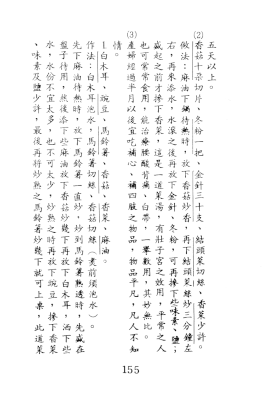 五天以上。
(2)香菇十朵切片、冬粉一把、金針三十支、結頭菜切絲、香菜少許。
做法：麻油下鍋待熱時，放下香菇炒香，再下結頭菜絲炒三分鐘左
右，再來添水，水滾之後再放下金針、冬粉，可再摻下些味素、鹽；
盛起之前才摻下香菜，這是一道菜湯，有壯子宮之效用，平常之人
也可常常食用，能治療腰酸背痛、白帶，一舉數用，其妙無比。
(3)產婦經過半月以後宜吃補心、補四肢之物品，物品平凡，凡人不知
情。
1白木耳、豌豆、馬鈴薯、香菇、香菜、麻油。
作法：白木耳泡水，馬鈴薯切絲、香菇切絲（煮前須泡水）。
先下麻油待熱時，放下馬鈴薯一直炒，炒到馬鈴薯熟透時，先盛在
盤子待用，然後添下些麻油放下香菇炒幾下再放下白木耳，洒下些
水，水份不宜太多，也不可太少，炒熟之時再放下豌豆，摻下香菜
、味素及鹽少許，最後再將炒熟之馬鈴薯炒幾下就可上桌，此道菜
155